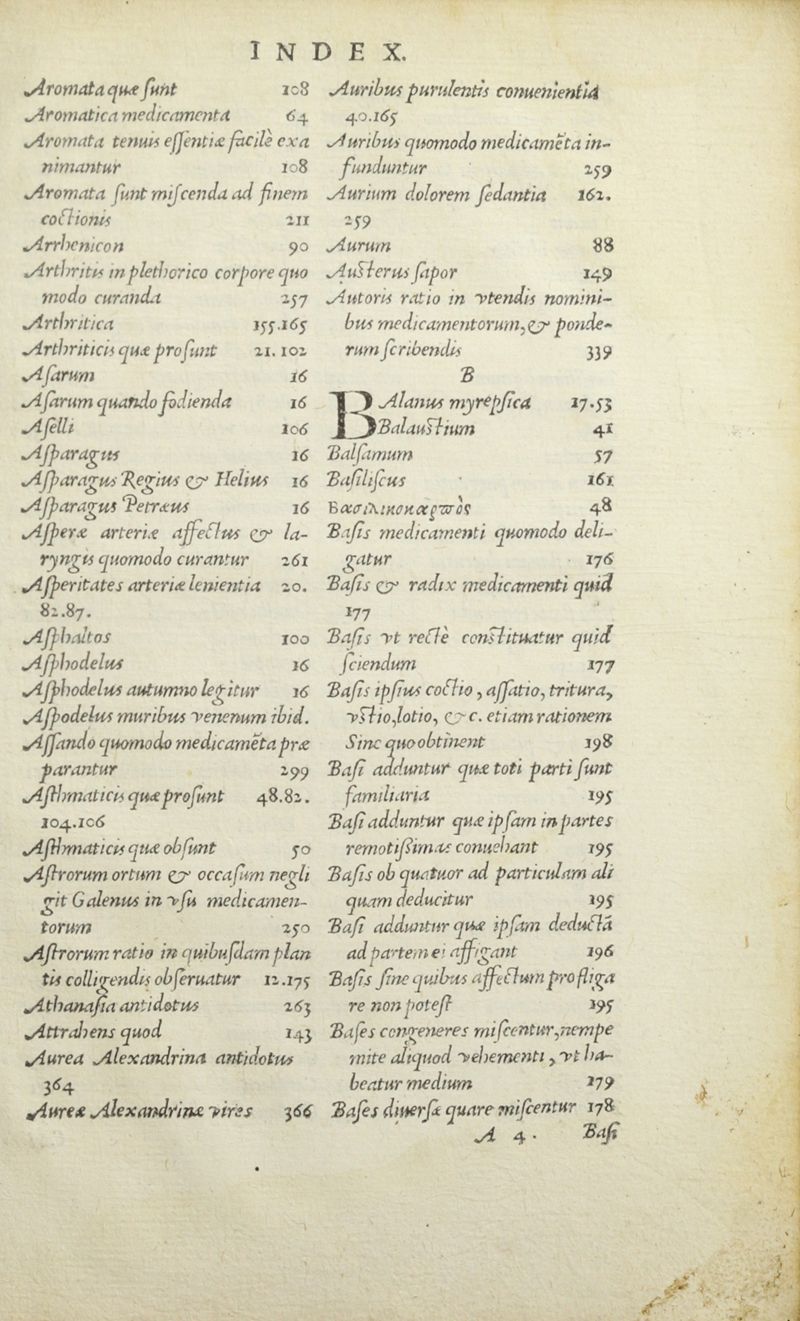 INDEX.
Aromata quæ ſunt 108
Aromatica medicamenta 64
Aromata tenuis eſſentiæ facilè exa
nimantur 108
Aromata ſunt miſcenda ad finem
coctionis 211
Arrhenicon 90
Arthritis in plethorico corpore quo
modo curanda 257
Arthritica 155.165
Arthriticis quæ proſunt 21.102
Aſarum 16
Aſarum quando fodienda 16
Aſelli 106
Aſparagus 16
Aſparagus Regius & Helius 16
Aſparagus Petræus 16
Aſperæ arteriæ affectus & la-
ryngis quomodo curantur 261
Aſperitates arteriæ lenientia 20.
82.87.
Aſphaltos 100
Aſphodelus 16
Aſphodelus autumno legitur 16
Aſpodelus muribus venenum ibid.
Aſſando quomodo medicamẽta præ
parantur 299
Aſthmaticis quæ proſunt 48.82.
104.106
Aſthmaticis quæ obſunt 50
Aſtrorum ortum & occaſum negli
git Galenus in vſu medicamen-
torum 250
Aſtrorum ratio in quibuſdam plan
tis colligendis obſeruatur 12.175
Athanaſia antidotus 263
Attrahens quod 143
Aurea Alexandrina antidotus
364
Aureæ Alexandrinæ vires 366
Auribus purulentis conuenientia
40.165
Auribus quomodo medicamẽta in-
funduntur 259
Aurium dolorem ſedantia 162.
259
Aurum 88
Auſterus ſapor 149
Autoris ratio in vtendis nomini-
bus medicamentorum, & ponde-
rum ſcribendis 339
B
BAlanus myrepſica 17.53
Balauſtium 41
Balſamum 57
Baſiliſcus 161
Βασιλικον καρυος 48
Baſis medicamenti quomodo deli-
gatur 176
Baſis & radix medicamenti quid
177
Baſis vt rectè conſtituatur quid
ſciendum 177
Baſis ipſius coctio, aſſatio, tritura,
vſtio, lotio, &c. etiam rationem
Sinc quo obtinent 198
Baſi adduntur quæ toti parti ſunt
familiaria 195
Baſi adduntur quæ ipſam in partes
remotiſsimas conuehant 195
Baſis ob quatuor ad particulam ali
quam deducitur 195
Baſi adduntur quæ ipſam deductã
ad partem ei affigant 196
Baſis ſine quibus affectum profliga
re non poteſt 195
Baſes congeneres miſcentur, nempe
mite aliquod vehementi, vt ha-
beatur medium 179
Baſes diuerſæ quare miſcentur 178
A 4. Baſi